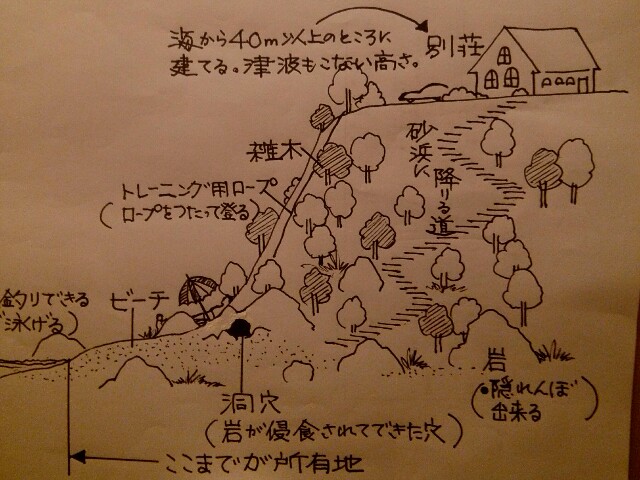 海から40m以上のところに
建てる。津波もこない高さ。
別荘
砂浜に
降りる道
雑木
トレーニング用ロープ
(ロープをつたって登る)
釣りできる
泳げる)
ビーチ
岩
(•隠れんぼ
出来る)
洞穴
(岩が侵食されてできた穴)
ここまでが所有地